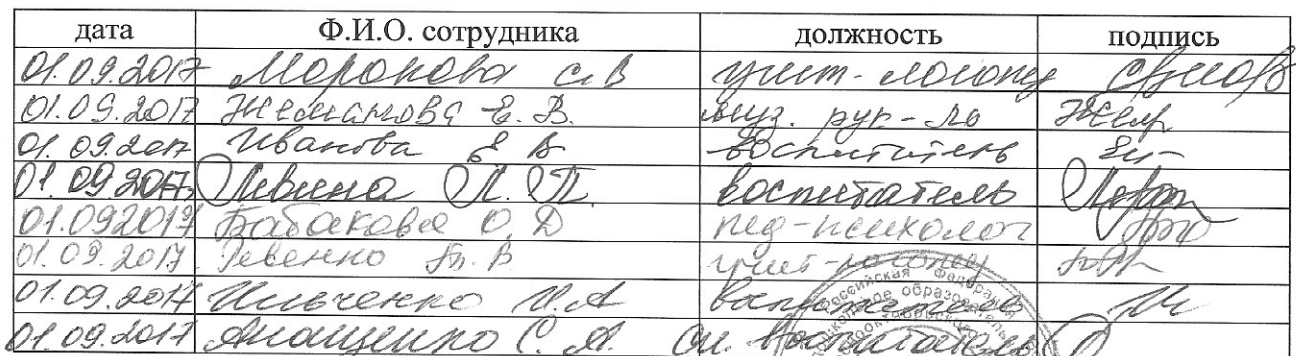 дата Ф.И.О. сотрудника должность подпись
01.09.2017 Моронова С.В учит-логопед
01.09.2017 Желманова Е. В. муз. рук-ль
01.09.2017 Иванова Е В воспитатель
01.09.2017 Левина Л. П. воспитатель
01.09 2017 Бабакова О. Д пед-психолог
01.09.2017 Левенко Т. В учит-логопед
01.09.2017 Ильченко И.А воспитатель
01.09.2017 Анащенко С. А. ст. воспитатель